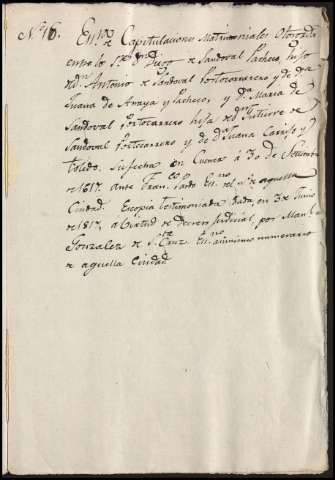 Nº 16. Escrª de Capitulaciones Matrimoniales Otorgada
entre los Sres Dn Diego de Sandoval Pacheco, hijo
de Dn Antonio de Sandoval Portocarrero y de Dª
Juana de Amaya y Pacheco, y Dª Maria de
Sandoval Portocarrero hija de Dn Gutierre de
Sandoval Portocarrero y de Dª Juana Carrillo y
Toledo. Su fecha en Cuenca á 30 de Setiembre
de 1617. ante Franco Pardo Esno del nº de aquella
Ciudad. Es copia testimoniada dada en 3 de Junio
de 1817, á virtud de decreto judicial, por Manl
Gonzalez de Sta Cruz Esno asimismo numerario
de aquella Ciudad